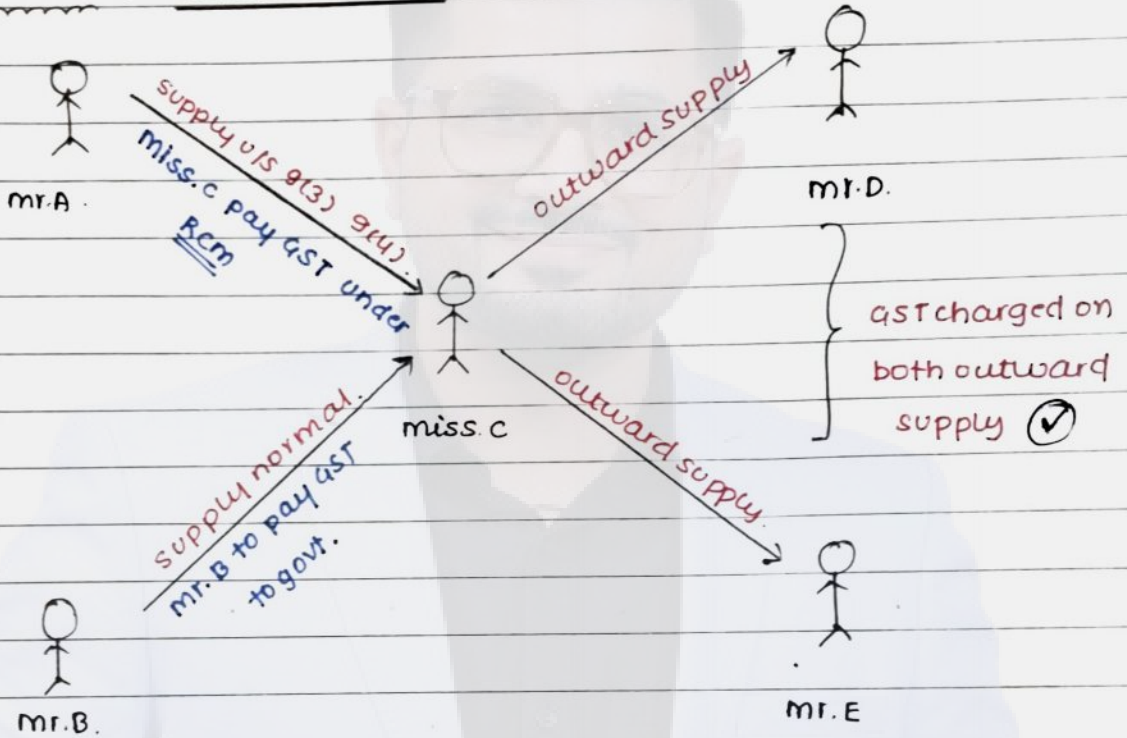 mr.A.
supply u/s 9(3) 9(4).
miss.c pay GST under
RCM
outward supply
mr.D.
miss.c
GST charged on
both outward
supply
supply normal.
mr.B to pay GST
to govt.
outward supply.
mr.B.
mr.E